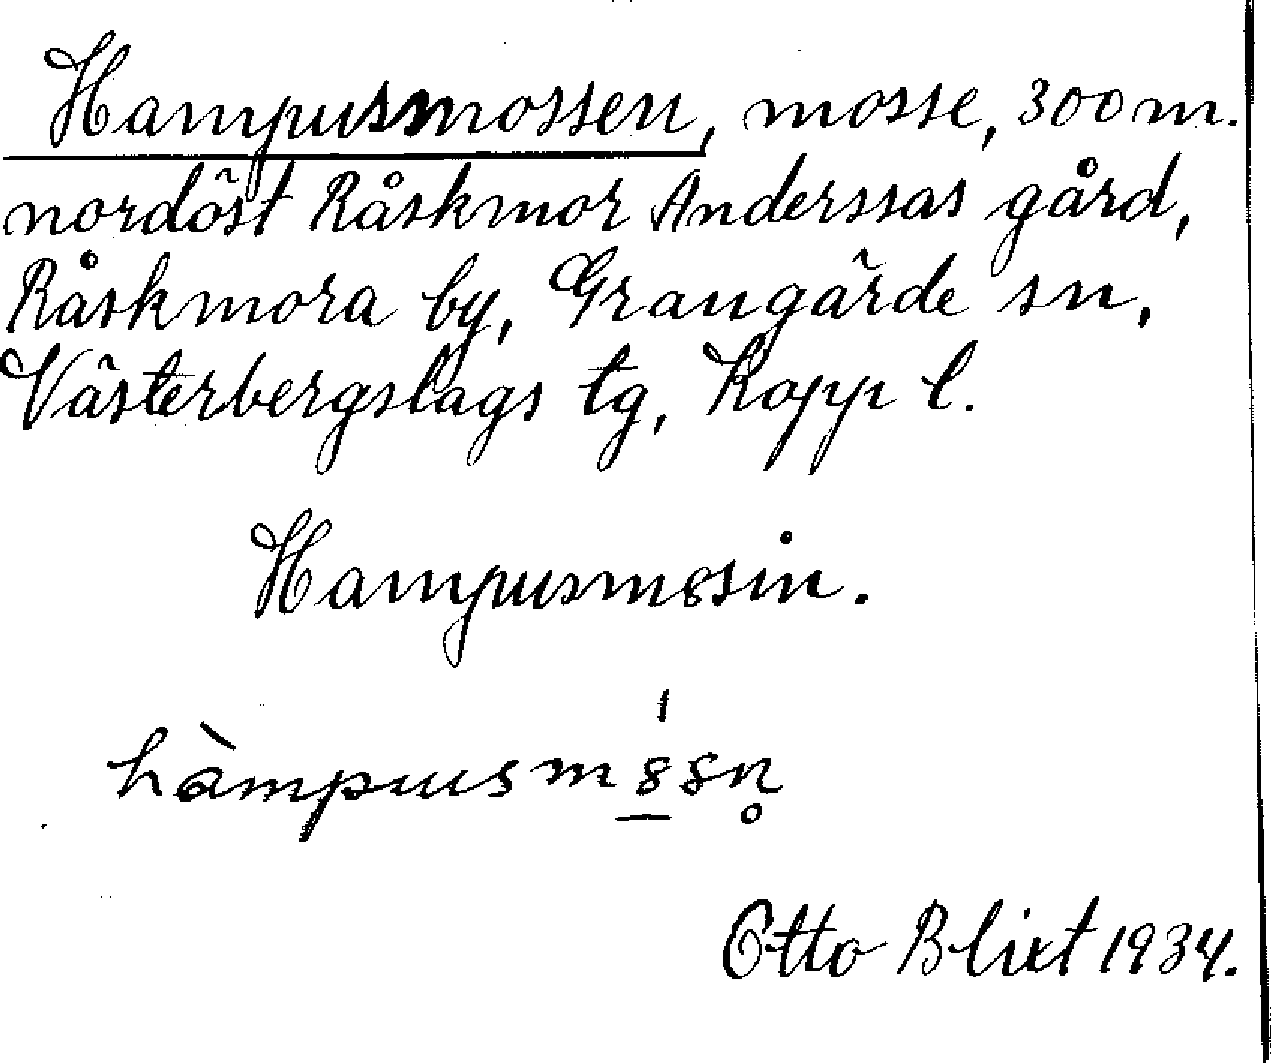 Hampusmossen, mosse, 300 m.
nordöst Råskmor Anderssas gård,
Råskmora by, Grangärde sn,
Västerbergslags tg, Kopp l.
Hampusmosin.
Otto Blixt 1934.